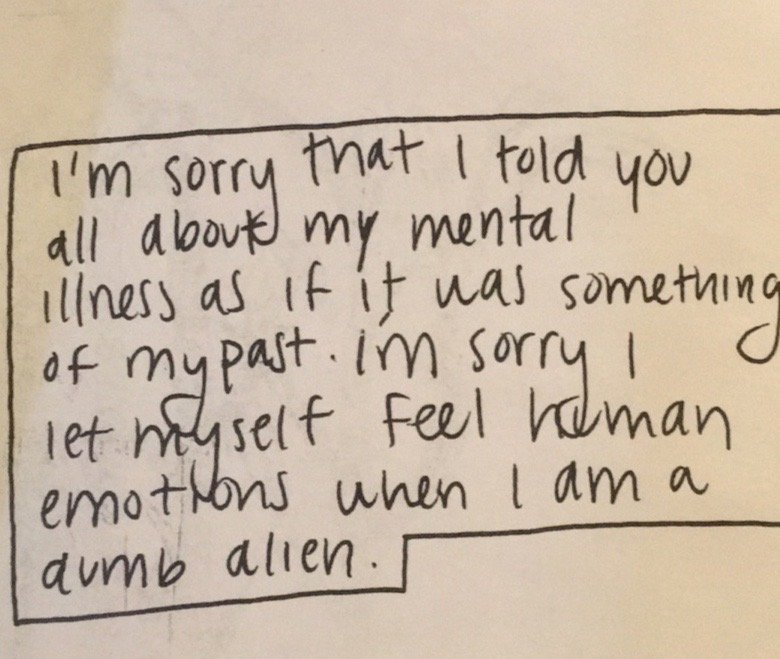 I'm sorry that I told you
all about my mental
illness as if it was something
of my past. i'm sorry I
let myself feel human
emotions when I am a
dumb alien.